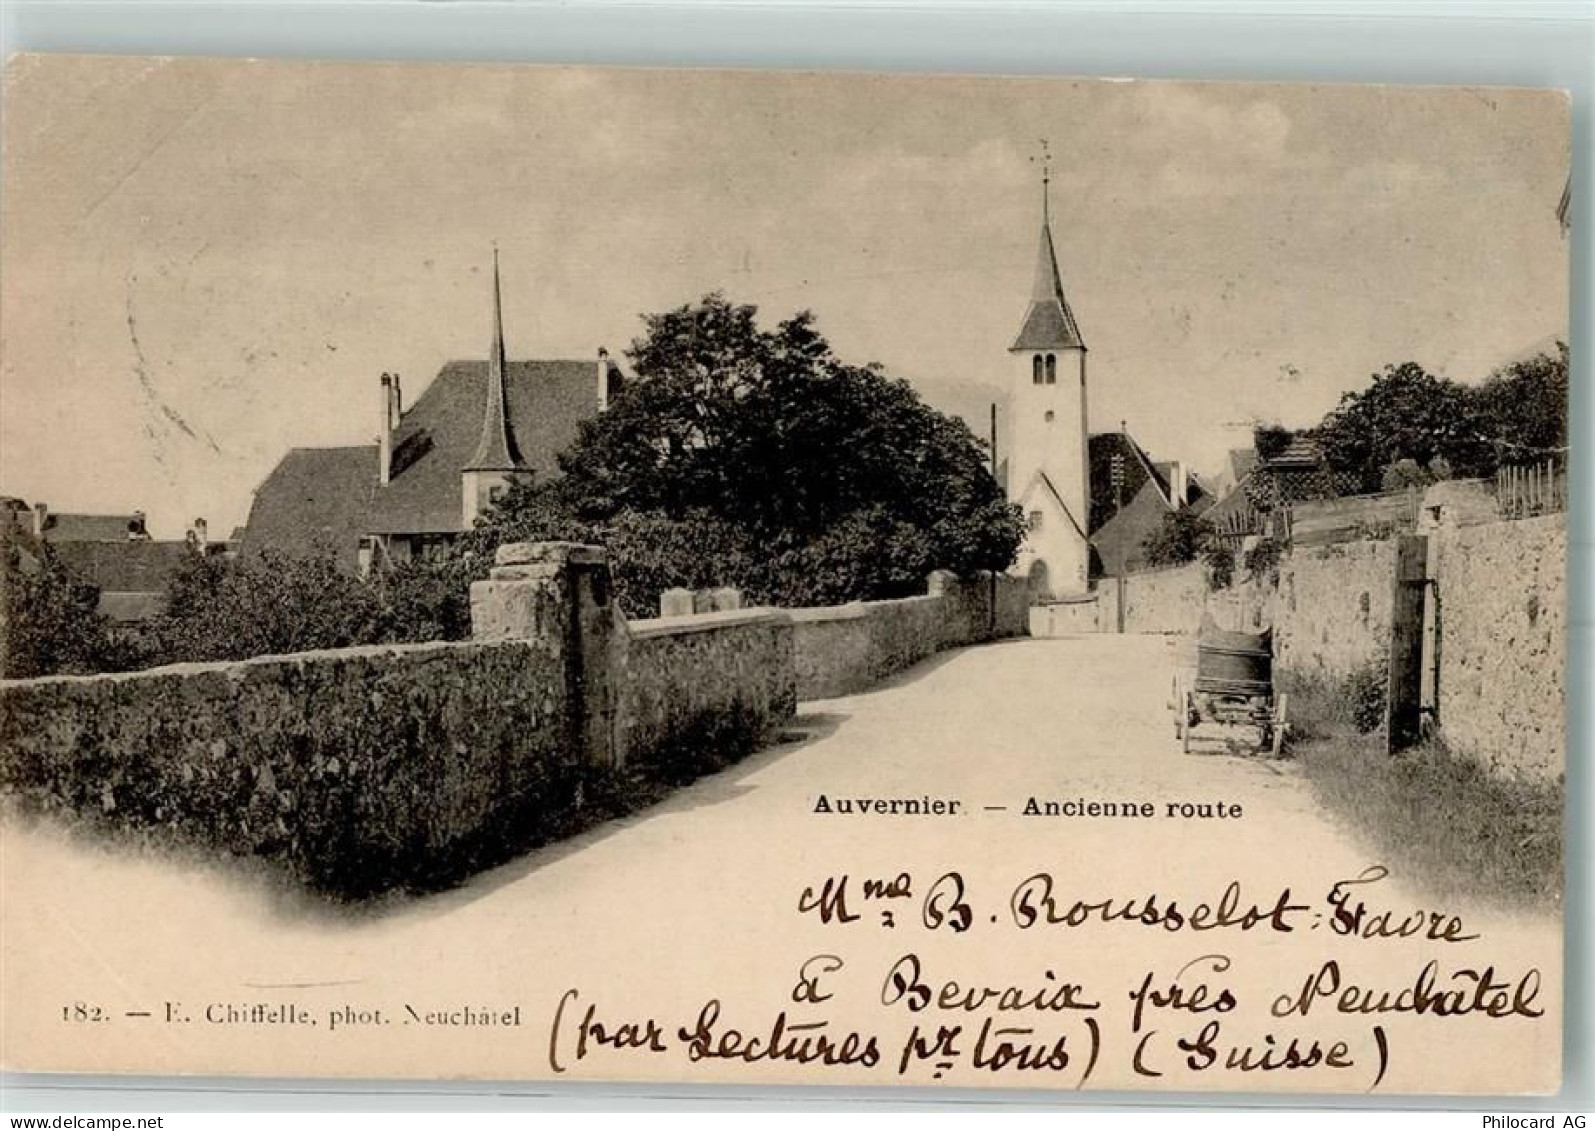 Auvernier. — Ancienne route
Mme B. Rousselot-Favre
à Bevaix près Neuchâtel
(par Lectures pr tous) (Suisse)
182. — E. Chiffelle, phot. Neuchâtel
Philocard AG